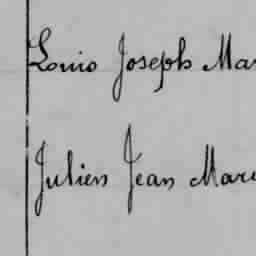 Louis Joseph Mar
Julien Jean Mari